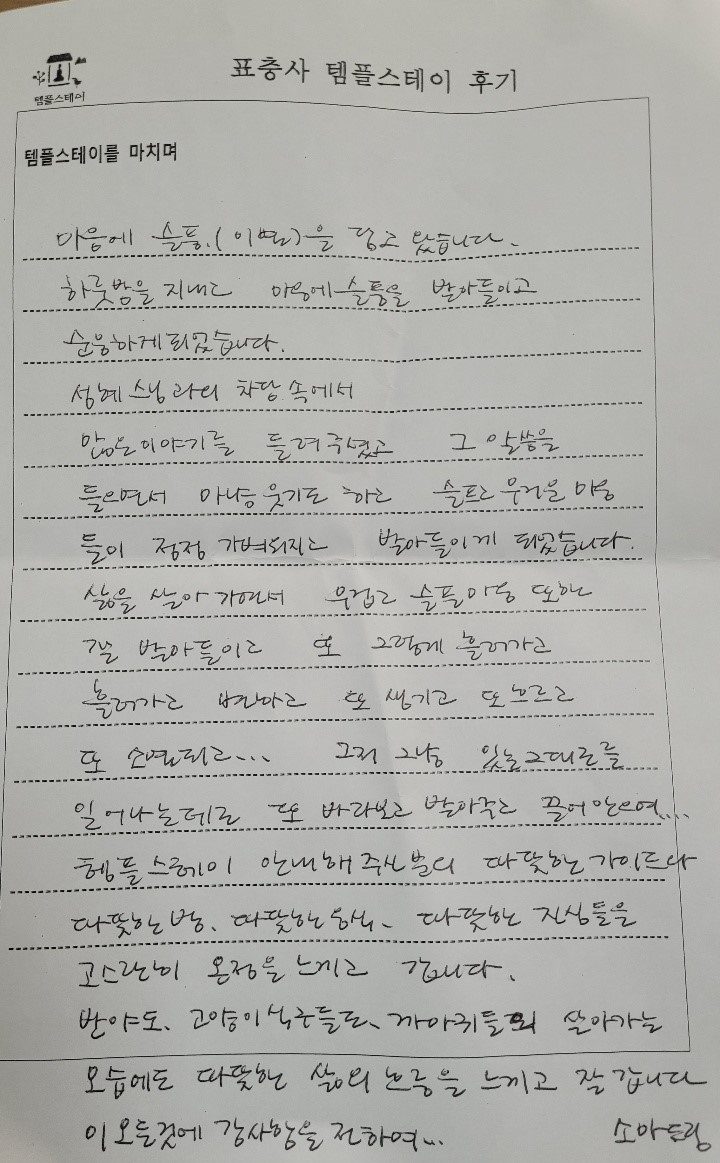 템플스테이
표충사 템플스테이 후기
템플스테이를 마치며
마음에 슬픔.(이별)을 담고 왔습니다.
하룻밤을 지내고 마음에 슬픔을 받아들이고
순응하게 되었습니다.
성혜 스님과의 차담 속에서
많은 이야기를 들려주셨고 그 말씀을
들으면서 마냥 웃기도 하고 슬프고 무거운 마음
들이 점점 가벼워지고 받아들이게 되었습니다.
삶을 살아가면서 무겁고 슬픔마음 또한
받아들이고 또 그렇게 흘러가고
흘러가고 변하고 또 생기고 또 흐르고
또 소멸되고... 그저 그냥 있는그대로를
일어나는데로 또 바라보고 받아주고 끌어안으며....
템플스테이 안내해 주신분의 따뜻한 가이드와
따뜻한 방, 따뜻한 음식, 따뜻한 진심들을
고스란히 온정을 느끼고 갑니다.
반야도, 고양이식구들도, 까마귀들의 살아가는
모습에도 따뜻한 삶의 흐름을 느끼고 잘 갑니다
이 모든것에 감사함을 전하며...